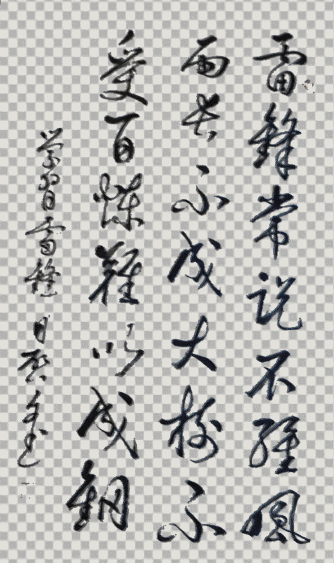 雷锋常说不经风
雨长不成大树不
受百炼难以成钢
学习雷锋